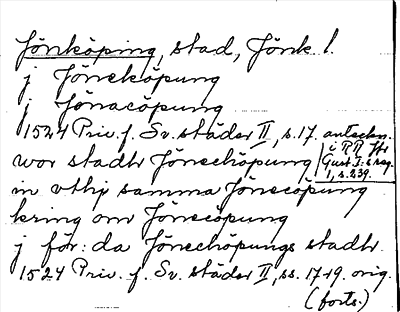 Jönköping, stad, Jönk l.
j Jöneköpung
j Jönacöpung
1524 Priv. f. Sv. städer II, s. 17. anteckn.
i RR ftr
Gust. I:s reg.
1, s. 239.
wor stadh Jönechöpung
in vthj samma Jönecöpung
kring om Jönecöpung
j för:da Jönechöpungs stadh.
1524 Priv. f. Sv. städer II, ss. 17-19. orig.
(forts.)